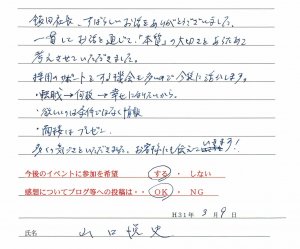 飯田社長、すばらしいお話をありがとうございました。
一貫してお話を通じて、「本質」の大切さをあらためて
考えさせていただきました。
採用のサポートをする機会も多いので今後に活かします。
・転職→何故→幸せになりたいから。
・欲しいのは条件ではなく情報
・面接はプレゼン
多くの気づきをいただきました。お客様にも伝えています!
今後のイベントに参加を希望 する ・ しない
感想についてブログ等への投稿は・・ OK ・ NG
H31年 3月 9日
氏名 山口 悦史